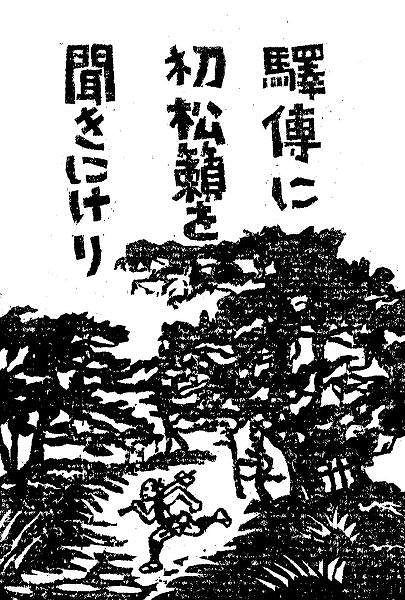 驛傳に
初松籟を
聞きにけり